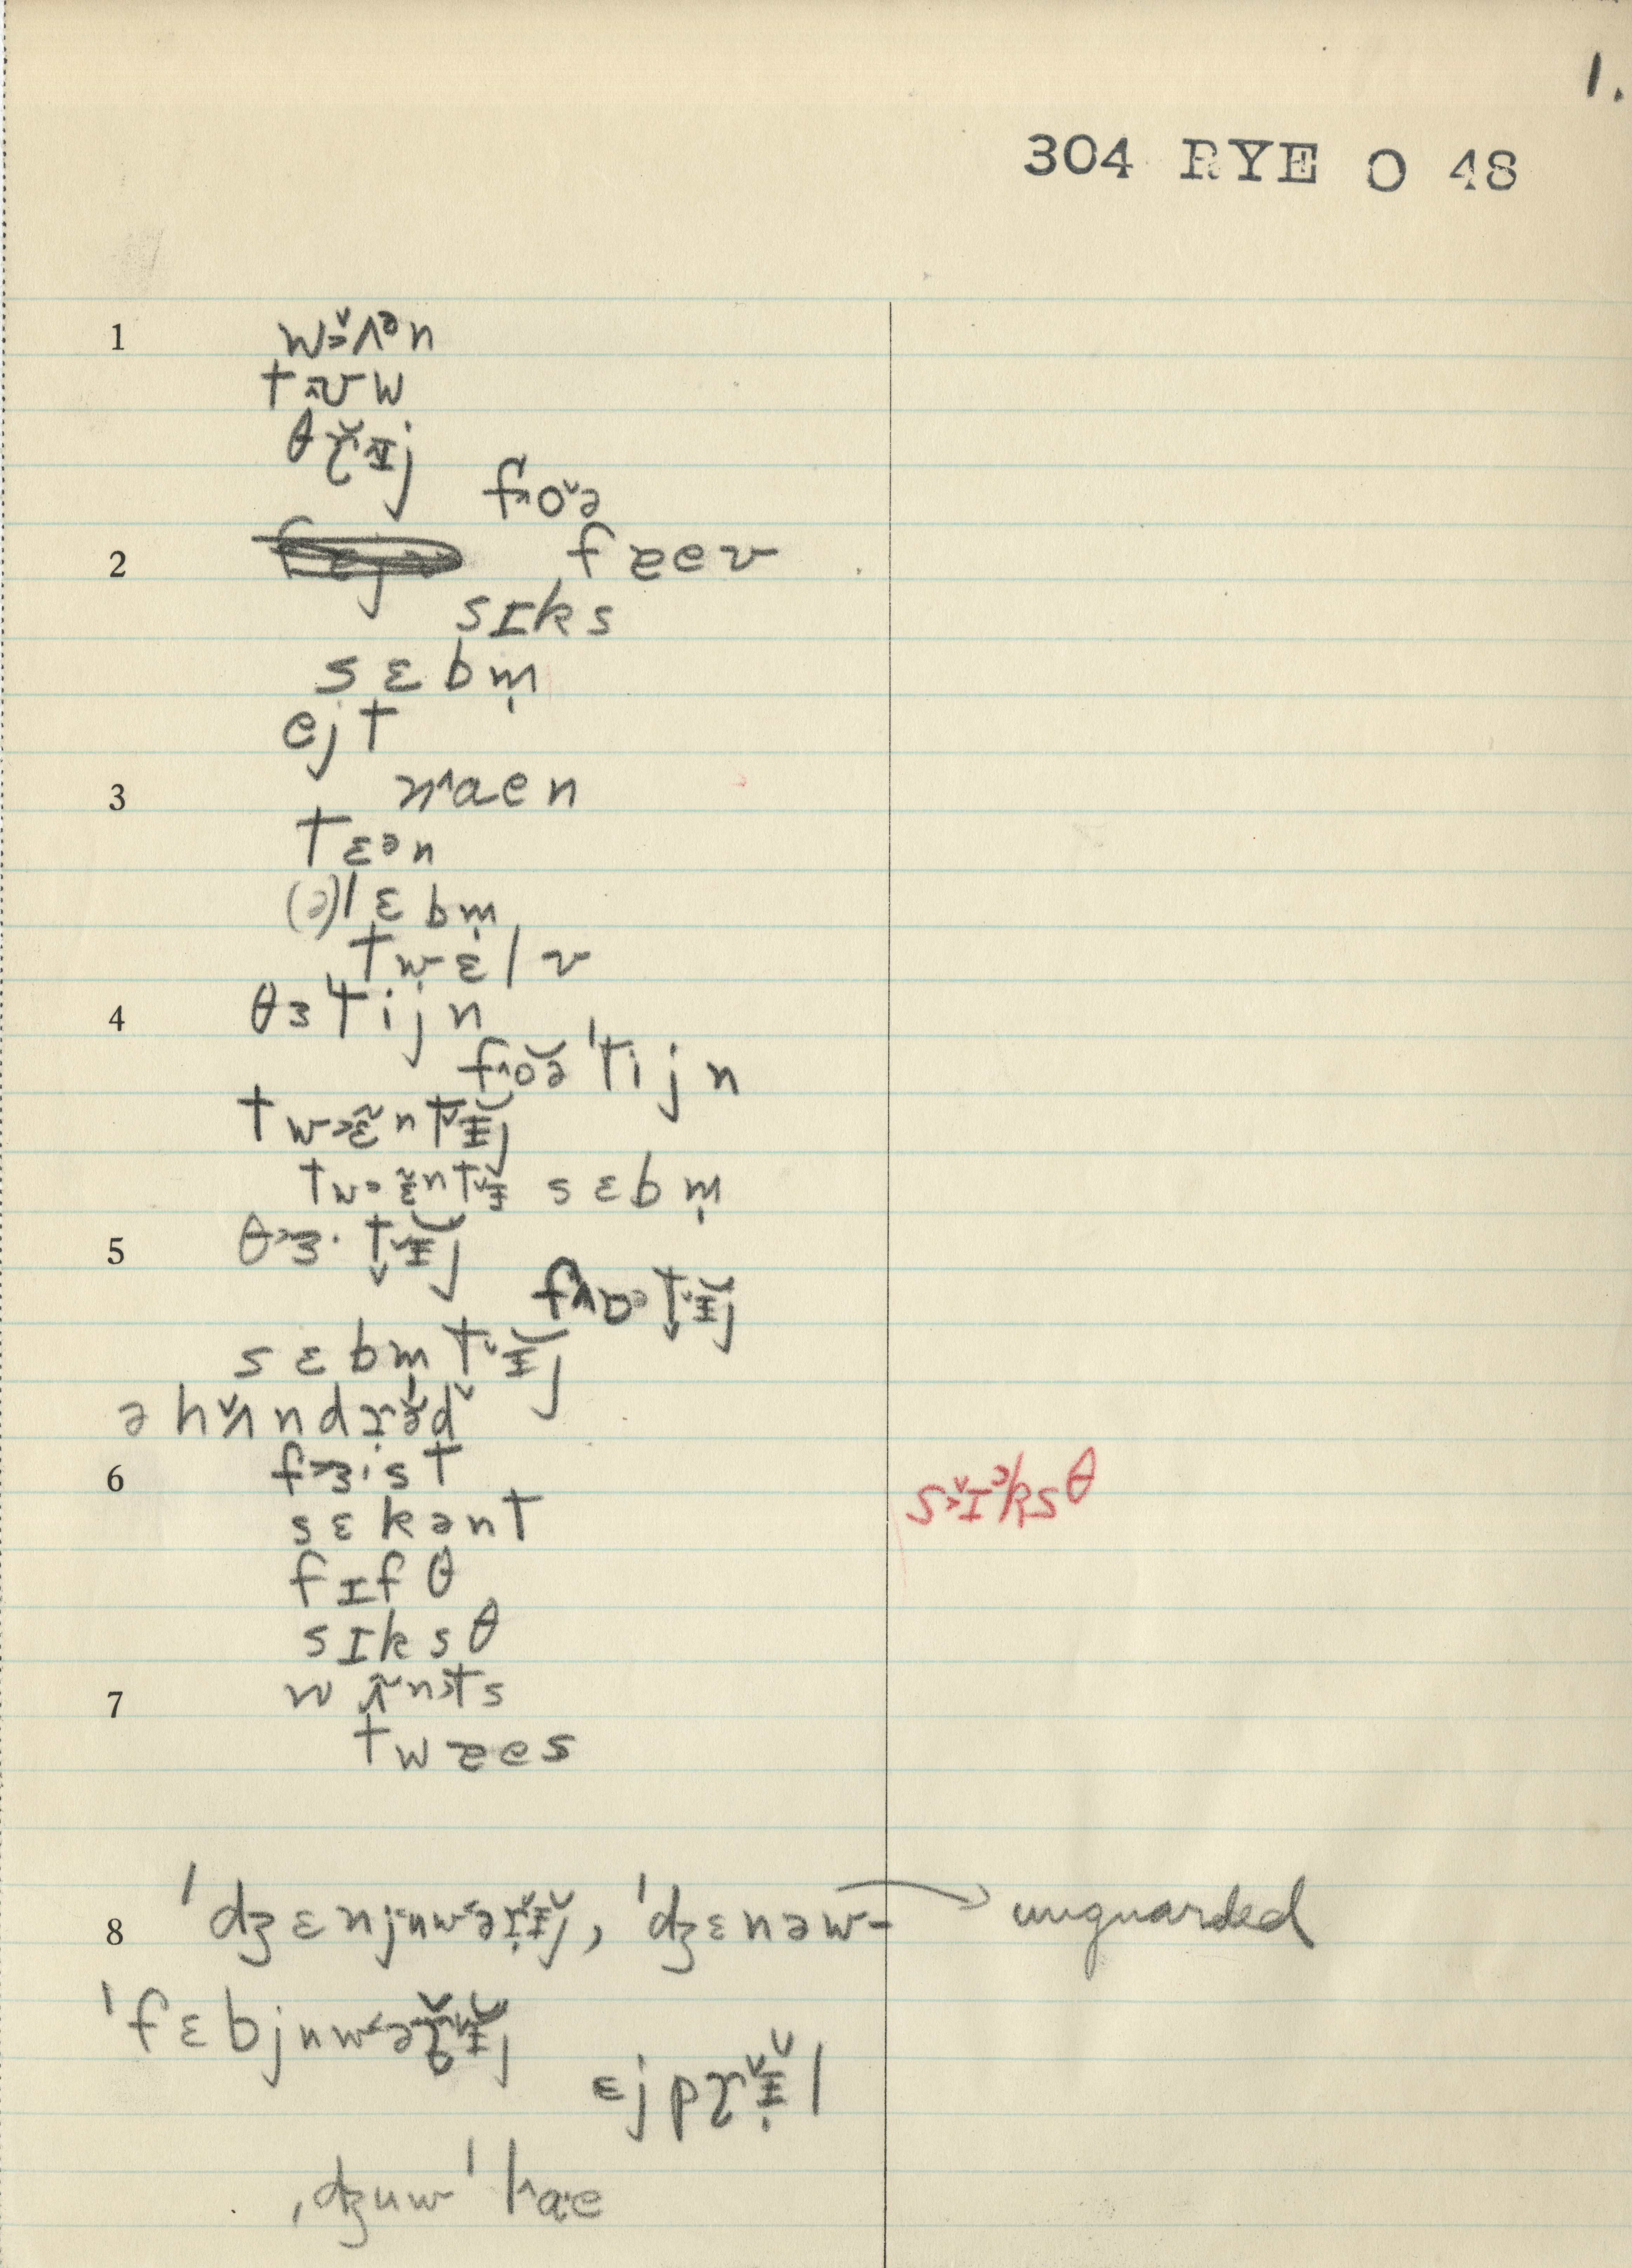 1.
304 RYE O 48
1 w˃̌ʌᵊn
tʌʊw
θɽ̆ɪj
f˄o̬ə
2 fɐev
sɪks
sɛbm̩
ejt
3 n˄aen
tɛən
(ə)lɛbm̩
twɛlv
4 θɜtijn
f˄ŏə'tijn
tw˃ɛ̃ntɪ̆j
tw˃ɛ̃ntɪ̆ sɛbm̩
5 θ˃ɜ·tɪ̆j
f˄ɒətɪ̆j
sɛbmtɪ̆j
əhʌ̌ndɽə̆d
6 f˃ɜ·st s˃̌ɪᵊksθ
sɛkənt
fɪfθ
sɪksθ
7 wʌ̃nts
twɐes
8 'dʒɛnjuw˂əɽɪ̆j, 'dʒɛnəw- → unguarded
'fɛbjuw˂əɽɪ̆j
ɛjpɽɪ̆l
ˌdʒuw'l˄ae